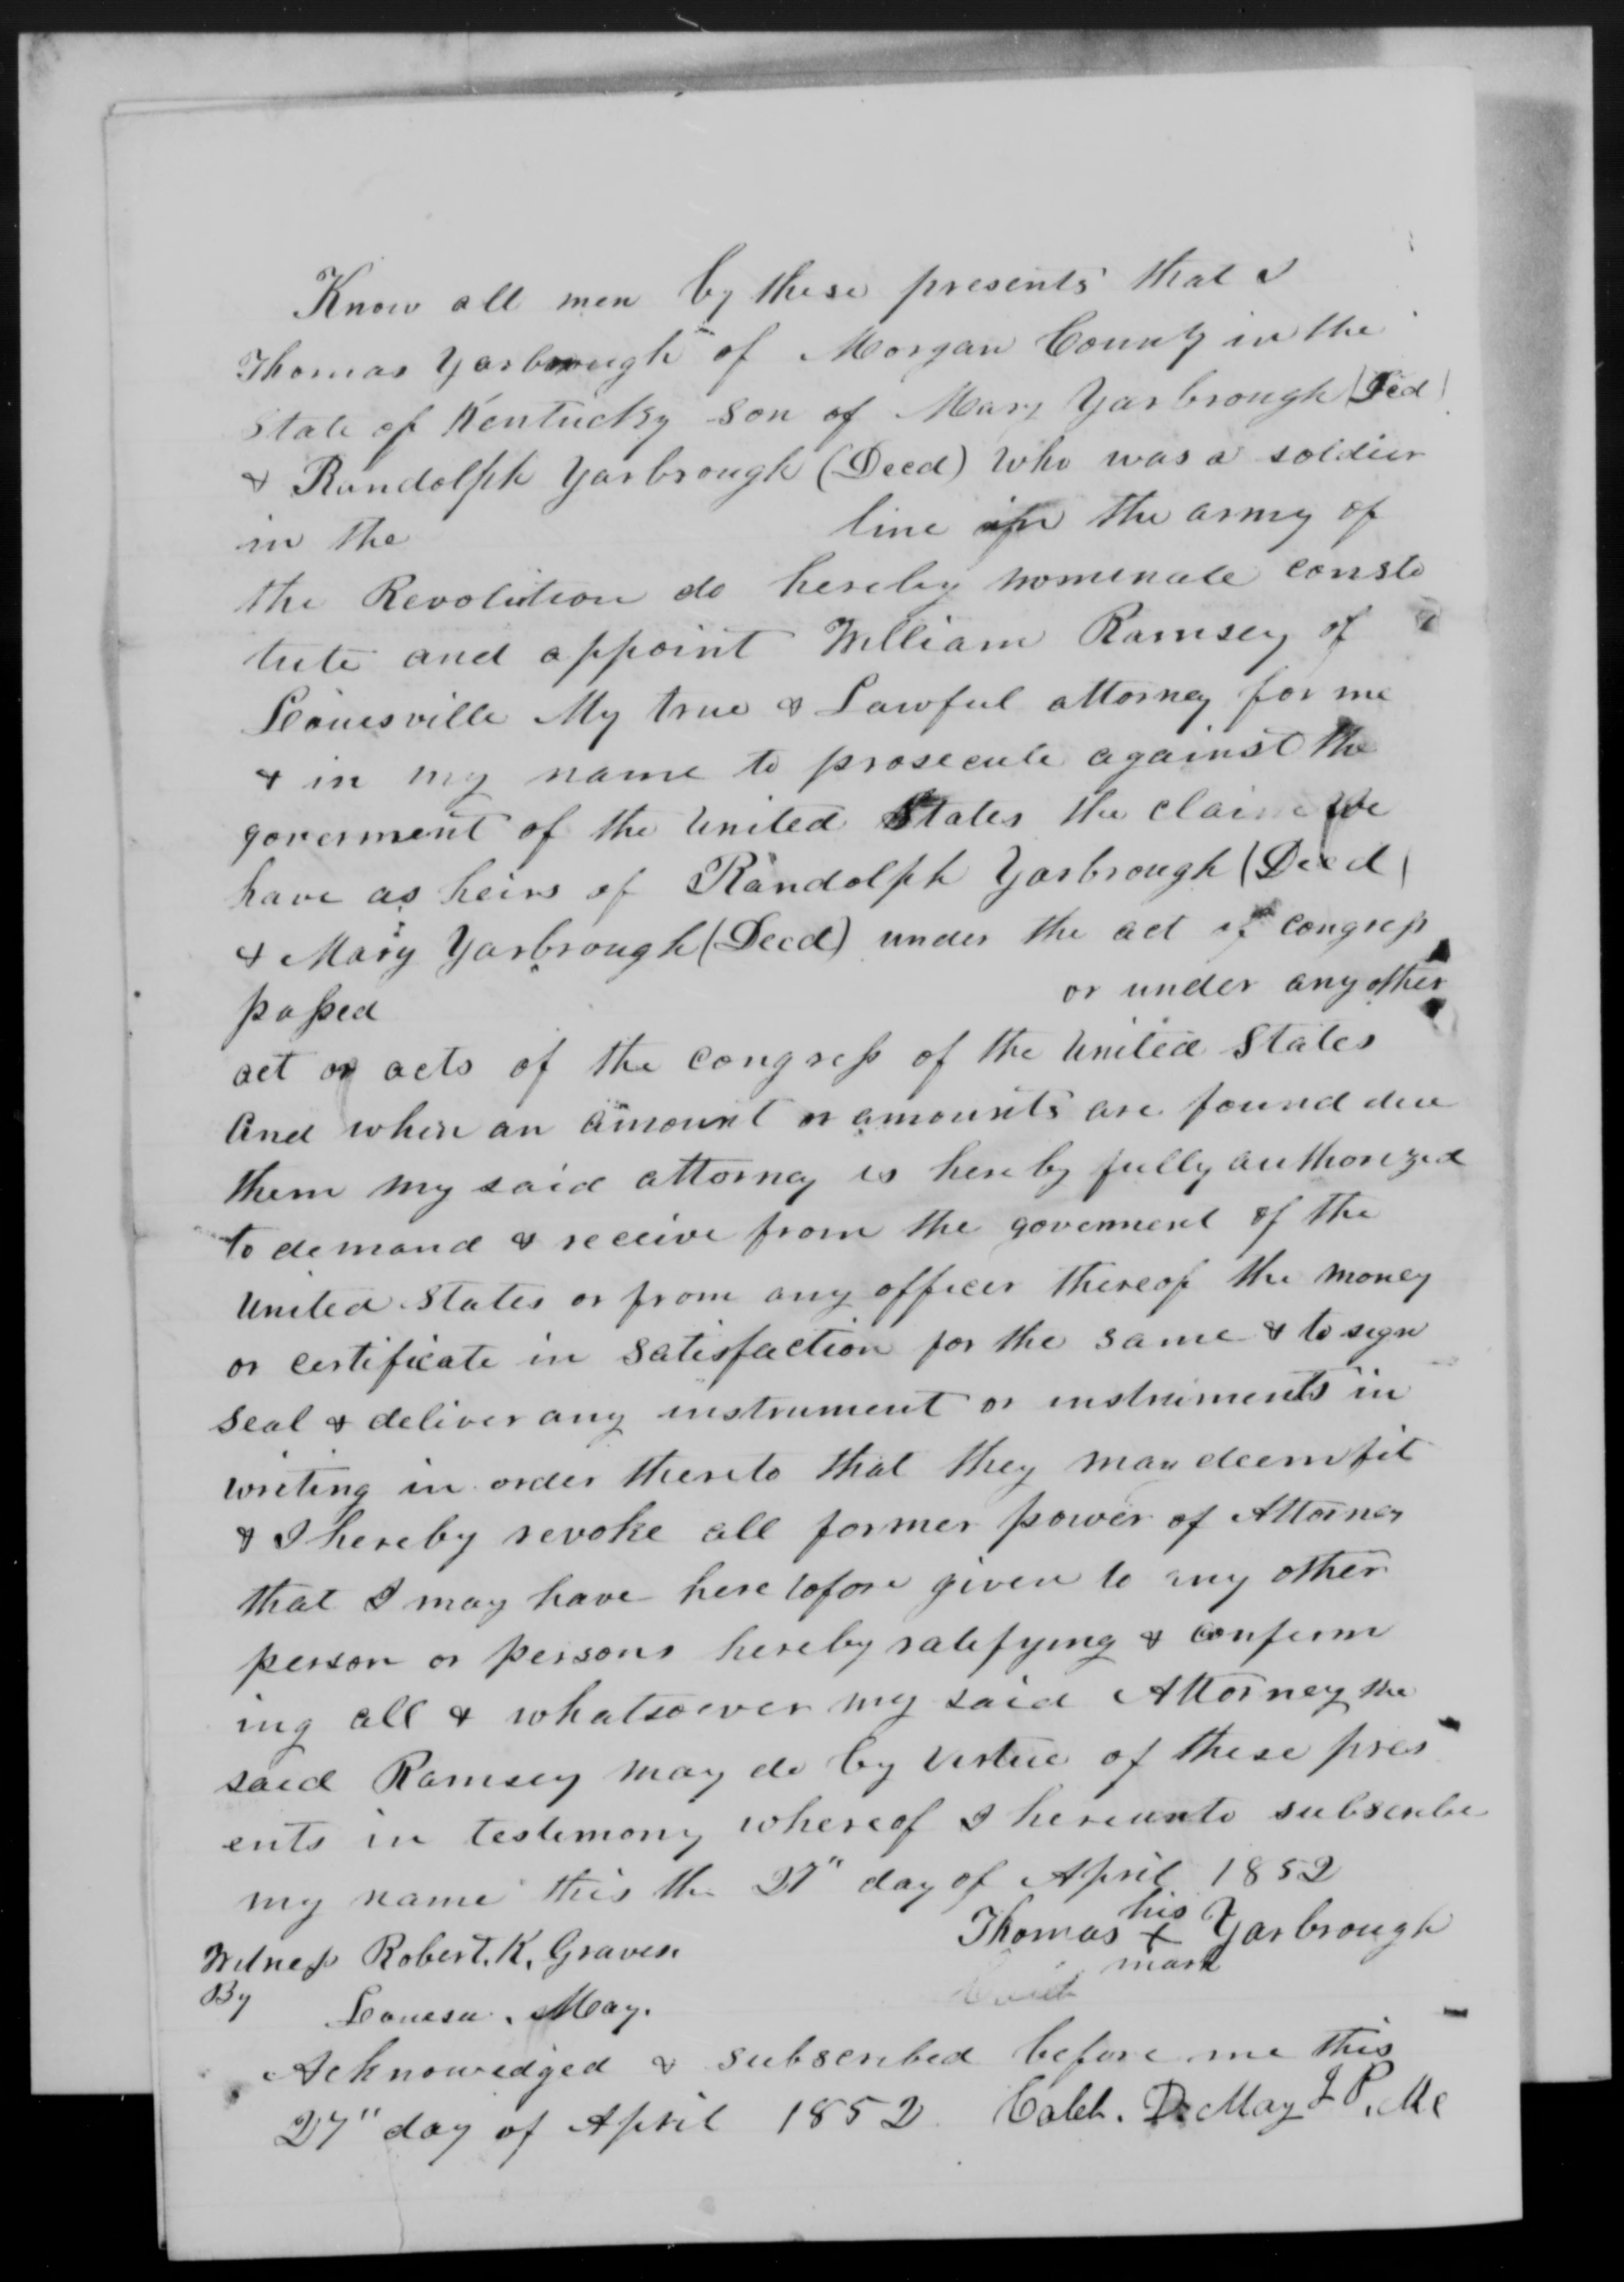 Know all men by these presents that I
Thomas Yarbrough of Morgan County in the
State of Kentucky son of Mary Yarbrough (Decd)
& Randolph Yarbrough (Decd) who was a soldier
in the line in the army of
the Revolution do hereby nominate consti
tute and appoint William Ramsey of
Louisville My true & Lawful attorney for me
& in my name to prosecute against the
goverment of the United States the claim we
have as heirs of Randolph Yarbrough (Decd)
& Mary Yarbrough (Decd) under the act of congress
passed or under any other
act or acts of the congress of the United States
And when an amount or amounts are found due
them my said attorney is hereby fully authorized
to demand & receive from the goverment of the
United States or from any officer thereof the money
or certificate in satisfaction for the same & to sign
seal & deliver any instrument or instruments in
writing in order thereto that they may deem fit
& I hereby revoke all former power of Attorney
that I may have heretofore given to any other
person or persons hereby ratifying & confirm
ing all & whatsoever my said Attorney the
said Ramsey may do by virtue of these pres
ents in testimony whereof I hereunto subscribe
my name this the 27" day of April 1852
Thomas his X mark Yarbrough
Witness Robert. K. Graves.
By Louesa. May.
Acknowedged & subscribed before me this
27" day of April 1852 Caleb. D. May J P. MC